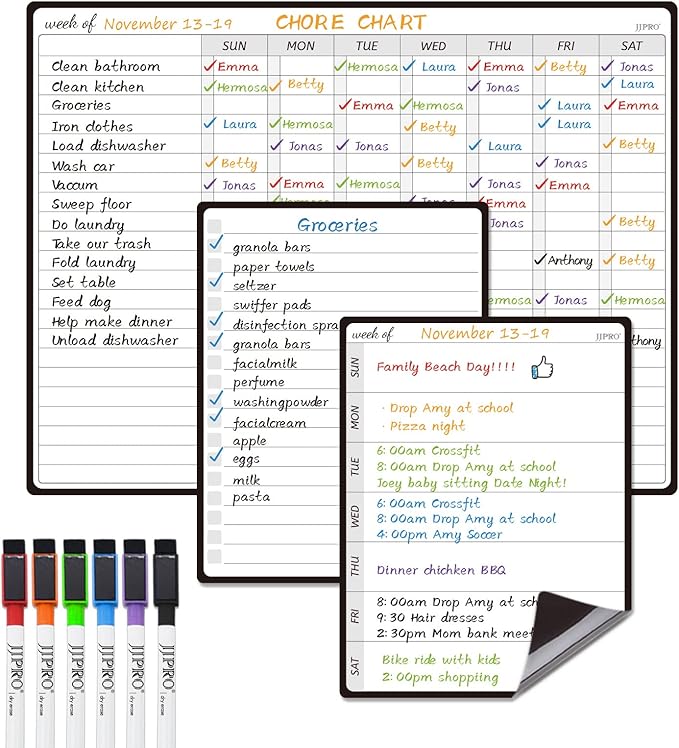 week of November 13-19 CHORE CHART JJPRO®
SUN MON TUE WED THU FRI SAT
Clean bathroom Emma Hermosa Laura Emma Betty Jonas
Clean kitchen Hermosa Betty Jonas Laura
Groceries Emma Hermosa Laura Emma
Iron clothes Laura Hermosa Betty Laura
Load dishwasher Jonas Jonas Laura Betty
Wash car Betty Betty Jonas
Vaccum Jonas Emma Hermosa Jonas Emma
Sweep floor Emma
Do laundry Jonas Betty
Take our trash
Fold laundry Anthony Betty
Set table
Feed dog ermosa Jonas Hermosa
Help make dinner
Unload dishwasher thony
Groceries
granola bars
paper towels
seltzer
swiffer pads
disinfection spra
granola bars
facialmilk
perfume
washingpowder
facialcream
apple
eggs
milk
pasta
week of November 13-19 JJPRO®
SUN Family Beach Day!!!!
MON · Drop Amy at school
· Pizza night
TUE 6:00am Crossfit
8:00am Drop Amy at school
Joey baby sitting Date Night!
WED 6:00am Crossfit
8:00am Drop Amy at school
4:00pm Amy Soccer
THU Dinner chichken BBQ
FRI 8:00am Drop Amy at sch
9:30 Hair dresses
2:30pm Mom bank meet
SAT Bike ride with kids
2:00pm shopping
JJPRO® dry erase
JJPRO® dry erase
JJPRO® dry erase
JJPRO® dry erase
JJPRO® dry erase
JJPRO® dry erase